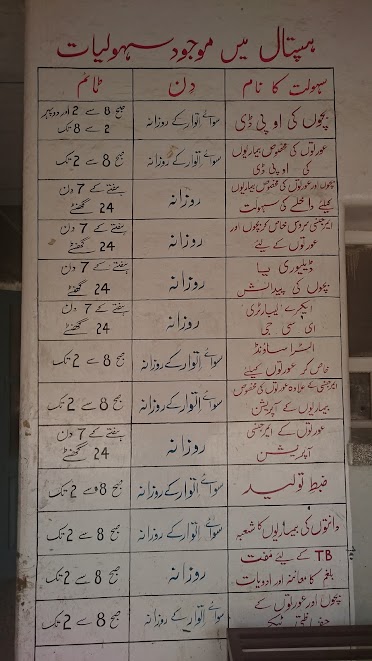 ہسپتال میں موجود سہولیات
سہولت کا نام دِن ٹائم
بچوں کی او پی ڈی سوائے اتوار کے روزانہ صبح 8 سے 2 اور دوپہر
2 سے 8 تک
عورتوں کی مخصوص بیماریوں
کی او پی ڈی سوائے اتوار کے روزانہ صبح 8 سے 2 تک
بچوں اور عورتوں کی مخصوص بیماریوں
کیلئے داخلے کی سہولت روزانہ ہفتے کے 7 دن
24 گھنٹے
ایمرجنسی سروس خاص کر بچوں اور
عورتوں کے لیئے روزانہ ہفتے کے 7 دن
24 گھنٹے
ڈیلیوری یا
بچوں کی پیدائش روزانہ ہفتے کے 7 دن
24 گھنٹے
ایکسرے لیبارٹری
ای سی جی روزانہ ہفتے کے 7 دن
24 گھنٹے
الٹرا ساؤنڈ
خاص کر عورتوں کیلئے سوائے اتوار کے روزانہ صبح 8 سے 2 تک
ایمرجنسی کے علاوہ عورتوں کی مخصوص
بیماریوں کے آپریشن سوائے اتوار کے روزانہ صبح 8 سے 2 تک
عورتوں کے ایمرجنسی
آپریشن روزانہ ہفتے کے 7 دن
24 گھنٹے
ضبط تولید سوائے اتوار کے روزانہ صبح 8 سے 2 تک
دانتوں کی بیماریوں کا شعبہ سوائے اتوار کے روزانہ صبح 8 سے 2 تک
TB کے لیئے مفت
بلغم کا معائنہ اور ادویات روزانہ صبح 8 سے 2 تک
بچوں اور عورتوں کے
حفاظتی ٹیکے سوائے اتوار کے روزانہ صبح 8 سے 2 تک